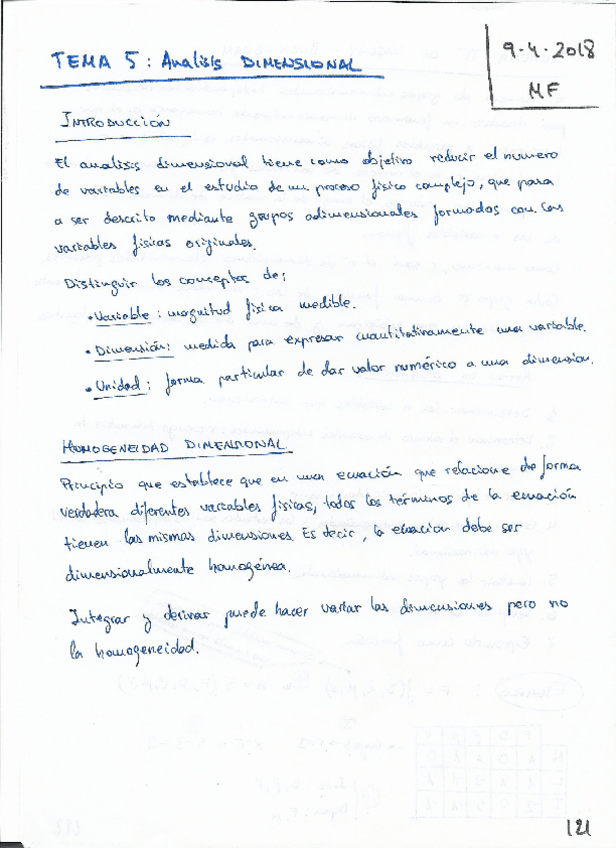 TEMA 5: Analisis DIMENSIONAL
9-4-2018
MF
INTRODUCCIÓN
El analisis dimensional tiene como objetivo reducir el numero
de variables en el estudio de un proceso fisico complejo, que pasa
a ser descrito mediante grupos adimensionales formados con las
variables fisicas originales.
Distinguir los conceptos de:
• Variable: magnitud fisica medible.
• Dimensión: medida para expresar cuantitativamente una variable.
• Unidad: forma particular de dar valor numérico a una dimension.
HOMOGENEIDAD DIMENSIONAL
Principio que establece que en una ecuación que relacione de forma
verdadera diferentes variables fisicas, todos los términos de la ecuación
tienen las mismas dimensiones. Es decir, la ecuacion debe ser
dimensionalmente homogénea.
Integrar y derivar puede hacer variar las dimensiones pero no
la homogeneidad.
121